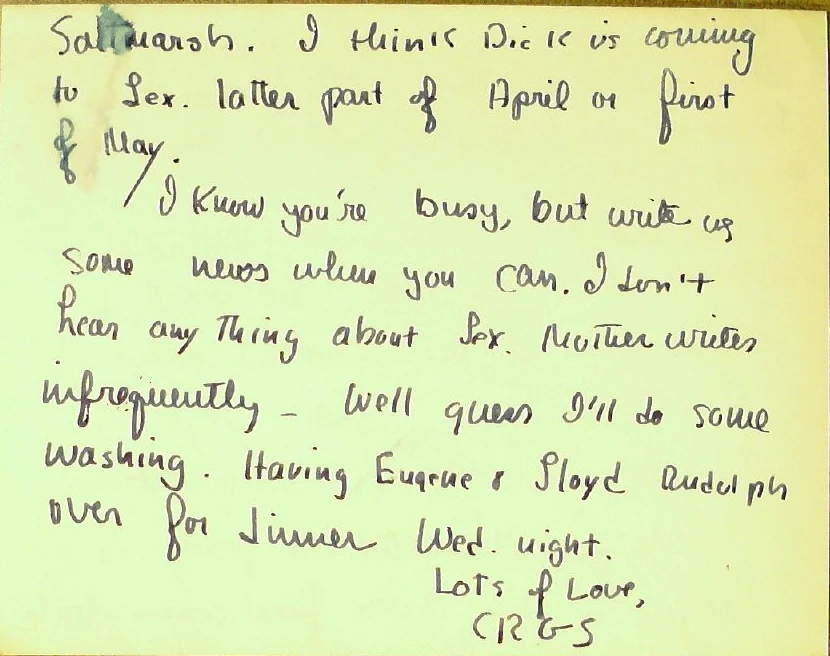 Saltmarsh. I think Dick is coming
to Lex. latter part of April or first
of May.
/ I know you're busy, but write us
some news when you can. I don't
hear any Thing about Lex. Mother writes
infrequently - Well guess I'll do some
washing. Having Eugene & Lloyd Rudolph
over for dinner Wed. night.
Lots of Love,
CRGS